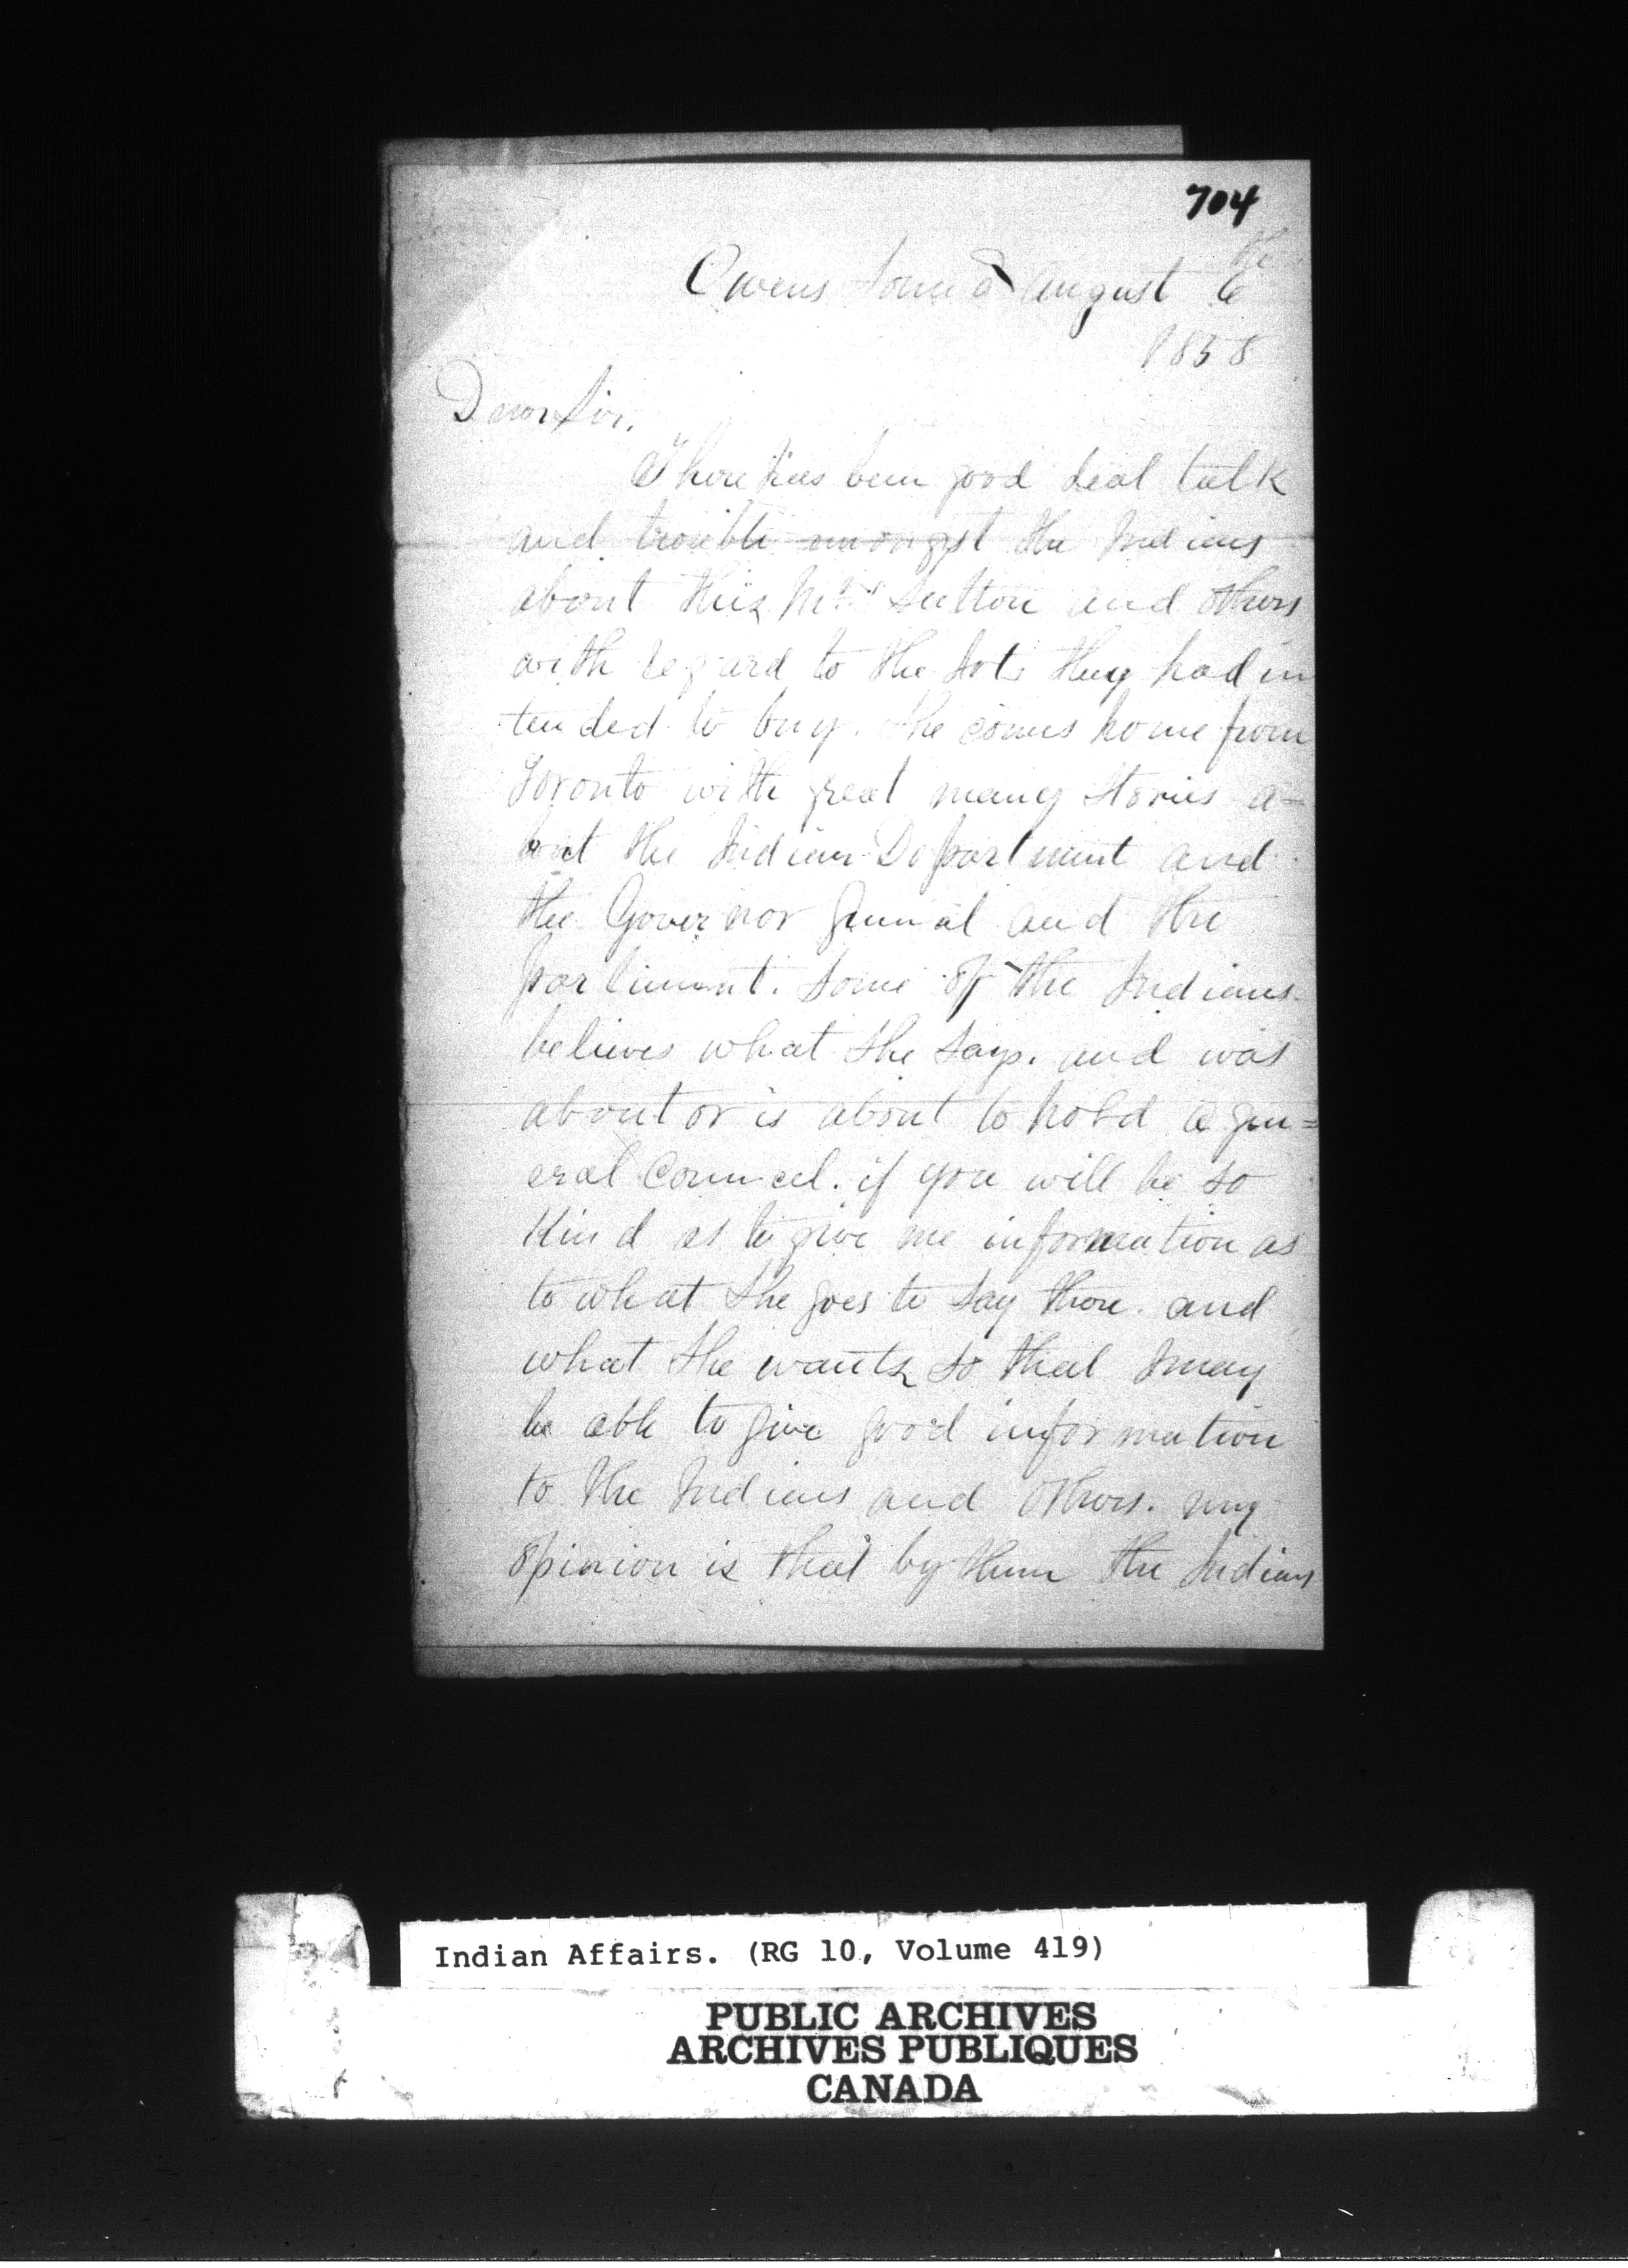 704
Owens Sound August 6th
1858
Dear Sir.
There has been good deal talk
and trouble amongst the Indians
about this Mrs Sutton and others
with regard to the Lots they had in
tended to buy. She comes home from
Toronto with great many Stories a-
bout the Indian Department and
the Governor General and the
parliment. Some of the Indians
believes what She Says. and was
about or is about to hold a gen=
eral Councel. if you will be so
Kind as to give me information as
to what She goes to Say there. and
what She wants so that I may
be able to give good information
to the Indians and others. my
opinion is that by them the Indians
Indian Affairs. (RG 10, Volume 419)
PUBLIC ARCHIVES
ARCHIVES PUBLIQUES
CANADA